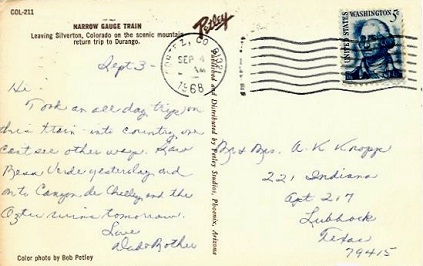 COL-211
NARROW GAUGE TRAIN
Leaving Silverton, Colorado on the scenic mountain
return trip to Durango.
Petley
CORTEZ, CO
SEP 4
AM
1968
UNITED STATES
WASHINGTON 5c
Sept 3 -
Hi -
Took an all day trip on
this train - into country one
can't see other ways. Saw
Mesa Verde yesterday and
onto Canyon de Chelley and the
Aztec ruins tomorrow.
Love
Dad & Mother
Published and Distributed by Petley Studios, Phoenix, Arizona
Mr & Mrs. A K Knopp
221 Indiana
Apt 217
Lubbock
Texas
79415
Color photo by Bob Petley